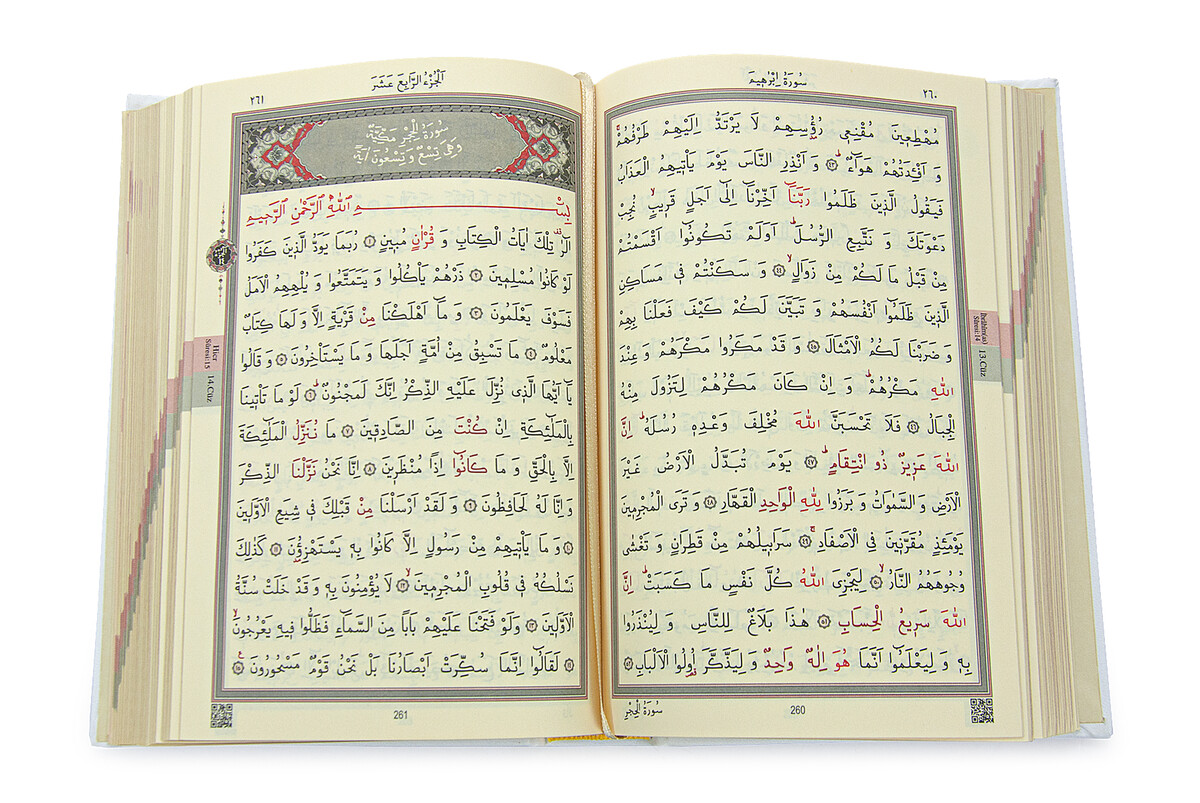 ٢٦٠ سُورَةُ اِبْرٰهِيمَ
مُهْطِعِينَ مُقْنِعِي رُؤُسِهِمْ لَا يَرْتَدُّ اِلَيْهِمْ طَرْفُهُمْۚ
وَ اَفْـِٔدَتُهُمْ هَوَٓاءٌؕ ﴿٤٣﴾ وَ اَنْذِرِ النَّاسَ يَوْمَ يَأْتِيهِمُ الْعَذَابُ
فَيَقُولُ الَّذِينَ ظَلَمُوا رَبَّنَٓا اَخِّرْنَٓا اِلٰٓى اَجَلٍ قَرِيبٍۙ نُجِبْ
دَعْوَتَكَ وَ نَتَّبِعِ الرُّسُلَؕ اَوَلَمْ تَكُونُٓوا اَقْسَمْتُمْ
مِنْ قَبْلُ مَا لَكُمْ مِنْ زَوَالٍۙ ﴿٤٤﴾ وَ سَكَنْتُمْ فِي مَسَاكِنِ
الَّذِينَ ظَلَمُٓوا اَنْفُسَهُمْ وَ تَبَيَّنَ لَكُمْ كَيْفَ فَعَلْنَا بِهِمْ
وَ ضَرَبْنَا لَكُمُ الْاَمْثَالَ ﴿٤٥﴾ وَ قَدْ مَكَرُوا مَكْرَهُمْ وَ عِنْدَ
اللّٰهِ مَكْرُهُمْؕ وَ اِنْ كَانَ مَكْرُهُمْ لِتَزُولَ مِنْهُ
الْجِبَالُ ﴿٤٦﴾ فَلَا تَحْسَبَنَّ اللّٰهَ مُخْلِفَ وَعْدِهِ رُسُلَهُؕ اِنَّ
اللّٰهَ عَزِيزٌ ذُو انْتِقَامٍؕ ﴿٤٧﴾ يَوْمَ تُبَدَّلُ الْاَرْضُ غَيْرَ
الْاَرْضِ وَ السَّمٰوَاتُ وَ بَرَزُوا لِلّٰهِ الْوَاحِدِ الْقَهَّارِ ﴿٤٨﴾ وَ تَرَى الْمُجْرِمِينَ
يَوْمَئِذٍ مُقَرَّنِينَ فِي الْاَصْفَادِۚ ﴿٤٩﴾ سَرَابِيلُهُمْ مِنْ قَطِرَانٍ وَ تَغْشٰى
وُجُوهَهُمُ النَّارُۙ ﴿٥٠﴾ لِيَجْزِيَ اللّٰهُ كُلَّ نَفْسٍ مَا كَسَبَتْؕ اِنَّ
اللّٰهَ سَرِيعُ الْحِسَابِ ﴿٥١﴾ هٰذَا بَلَاغٌ لِلنَّاسِ وَ لِيُنْذَرُوا
بِهِ وَ لِيَعْلَمُٓوا اَنَّمَا هُوَ اِلٰهٌ وَاحِدٌ وَ لِيَذَّكَّرَ اُو۬لُوا الْاَلْبَابِ ﴿٥٢﴾
İbrâhîm(as)
Sûresi:14
13.Cüz
سُورَةُ الْحِجْرِ
260
اَلْجُزْءُ الرَّابِعَ عَشَرَ ٢٦١
سُورَةُ الْحِجْرِ مَكِّيَّةٌ
وَهِيَ تِسْعٌ وَ تِسْعُونَ اٰيَةً
بِسْمِ اللّٰهِ الرَّحْمٰنِ الرَّحِيمِ
الٓرٰ۠ تِلْكَ اٰيَاتُ الْكِتَابِ وَ قُرْاٰنٍ مُبِينٍ ﴿١﴾ رُبَمَا يَوَدُّ الَّذِينَ كَفَرُوا
لَوْ كَانُوا مُسْلِمِينَ ﴿٢﴾ ذَرْهُمْ يَأْكُلُوا وَ يَتَمَتَّعُوا وَ يُلْهِهِمُ الْاَمَلُ
فَسَوْفَ يَعْلَمُونَ ﴿٣﴾ وَ مَٓا اَهْلَكْنَا مِنْ قَرْيَةٍ اِلَّا وَ لَهَا كِتَابٌ
مَعْلُومٌ ﴿٤﴾ مَا تَسْبِقُ مِنْ اُمَّةٍ اَجَلَهَا وَ مَا يَسْتَأْخِرُونَ ﴿٥﴾ وَ قَالُوا
يَٓا اَيُّهَا الَّذِي نُزِّلَ عَلَيْهِ الذِّكْرُ اِنَّكَ لَمَجْنُونٌؕ ﴿٦﴾ لَوْ مَا تَأْتِينَا
بِالْمَلٰٓئِكَةِ اِنْ كُنْتَ مِنَ الصَّادِقِينَ ﴿٧﴾ مَا نُنَزِّلُ الْمَلٰٓئِكَةَ
اِلَّا بِالْحَقِّ وَ مَا كَانُٓوا اِذًا مُنْظَرِينَ ﴿٨﴾ اِنَّا نَحْنُ نَزَّلْنَا الذِّكْرَ
وَ اِنَّا لَهُ لَحَافِظُونَ ﴿٩﴾ وَ لَقَدْ اَرْسَلْنَا مِنْ قَبْلِكَ فِي شِيَعِ الْاَوَّلِينَ
﴿١٠﴾ وَ مَا يَأْتِيهِمْ مِنْ رَسُولٍ اِلَّا كَانُوا بِهِ يَسْتَهْزِؤُنَ ﴿١١﴾ كَذٰلِكَ
نَسْلُكُهُ فِي قُلُوبِ الْمُجْرِمِينَۙ ﴿١٢﴾ لَا يُؤْمِنُونَ بِهِ وَ قَدْ خَلَتْ سُنَّةُ
الْاَوَّلِينَ ﴿١٣﴾ وَلَوْ فَتَحْنَا عَلَيْهِمْ بَابًا مِنَ السَّمَٓاءِ فَظَلُّوا فِيهِ يَعْرُجُونَۙ
﴿١٤﴾ لَقَالُٓوا اِنَّمَا سُكِّرَتْ اَبْصَارُنَا بَلْ نَحْنُ قَوْمٌ مَسْحُورُونَ ﴿١٥﴾
Hicr
Sûresi:15
14.Cüz
261